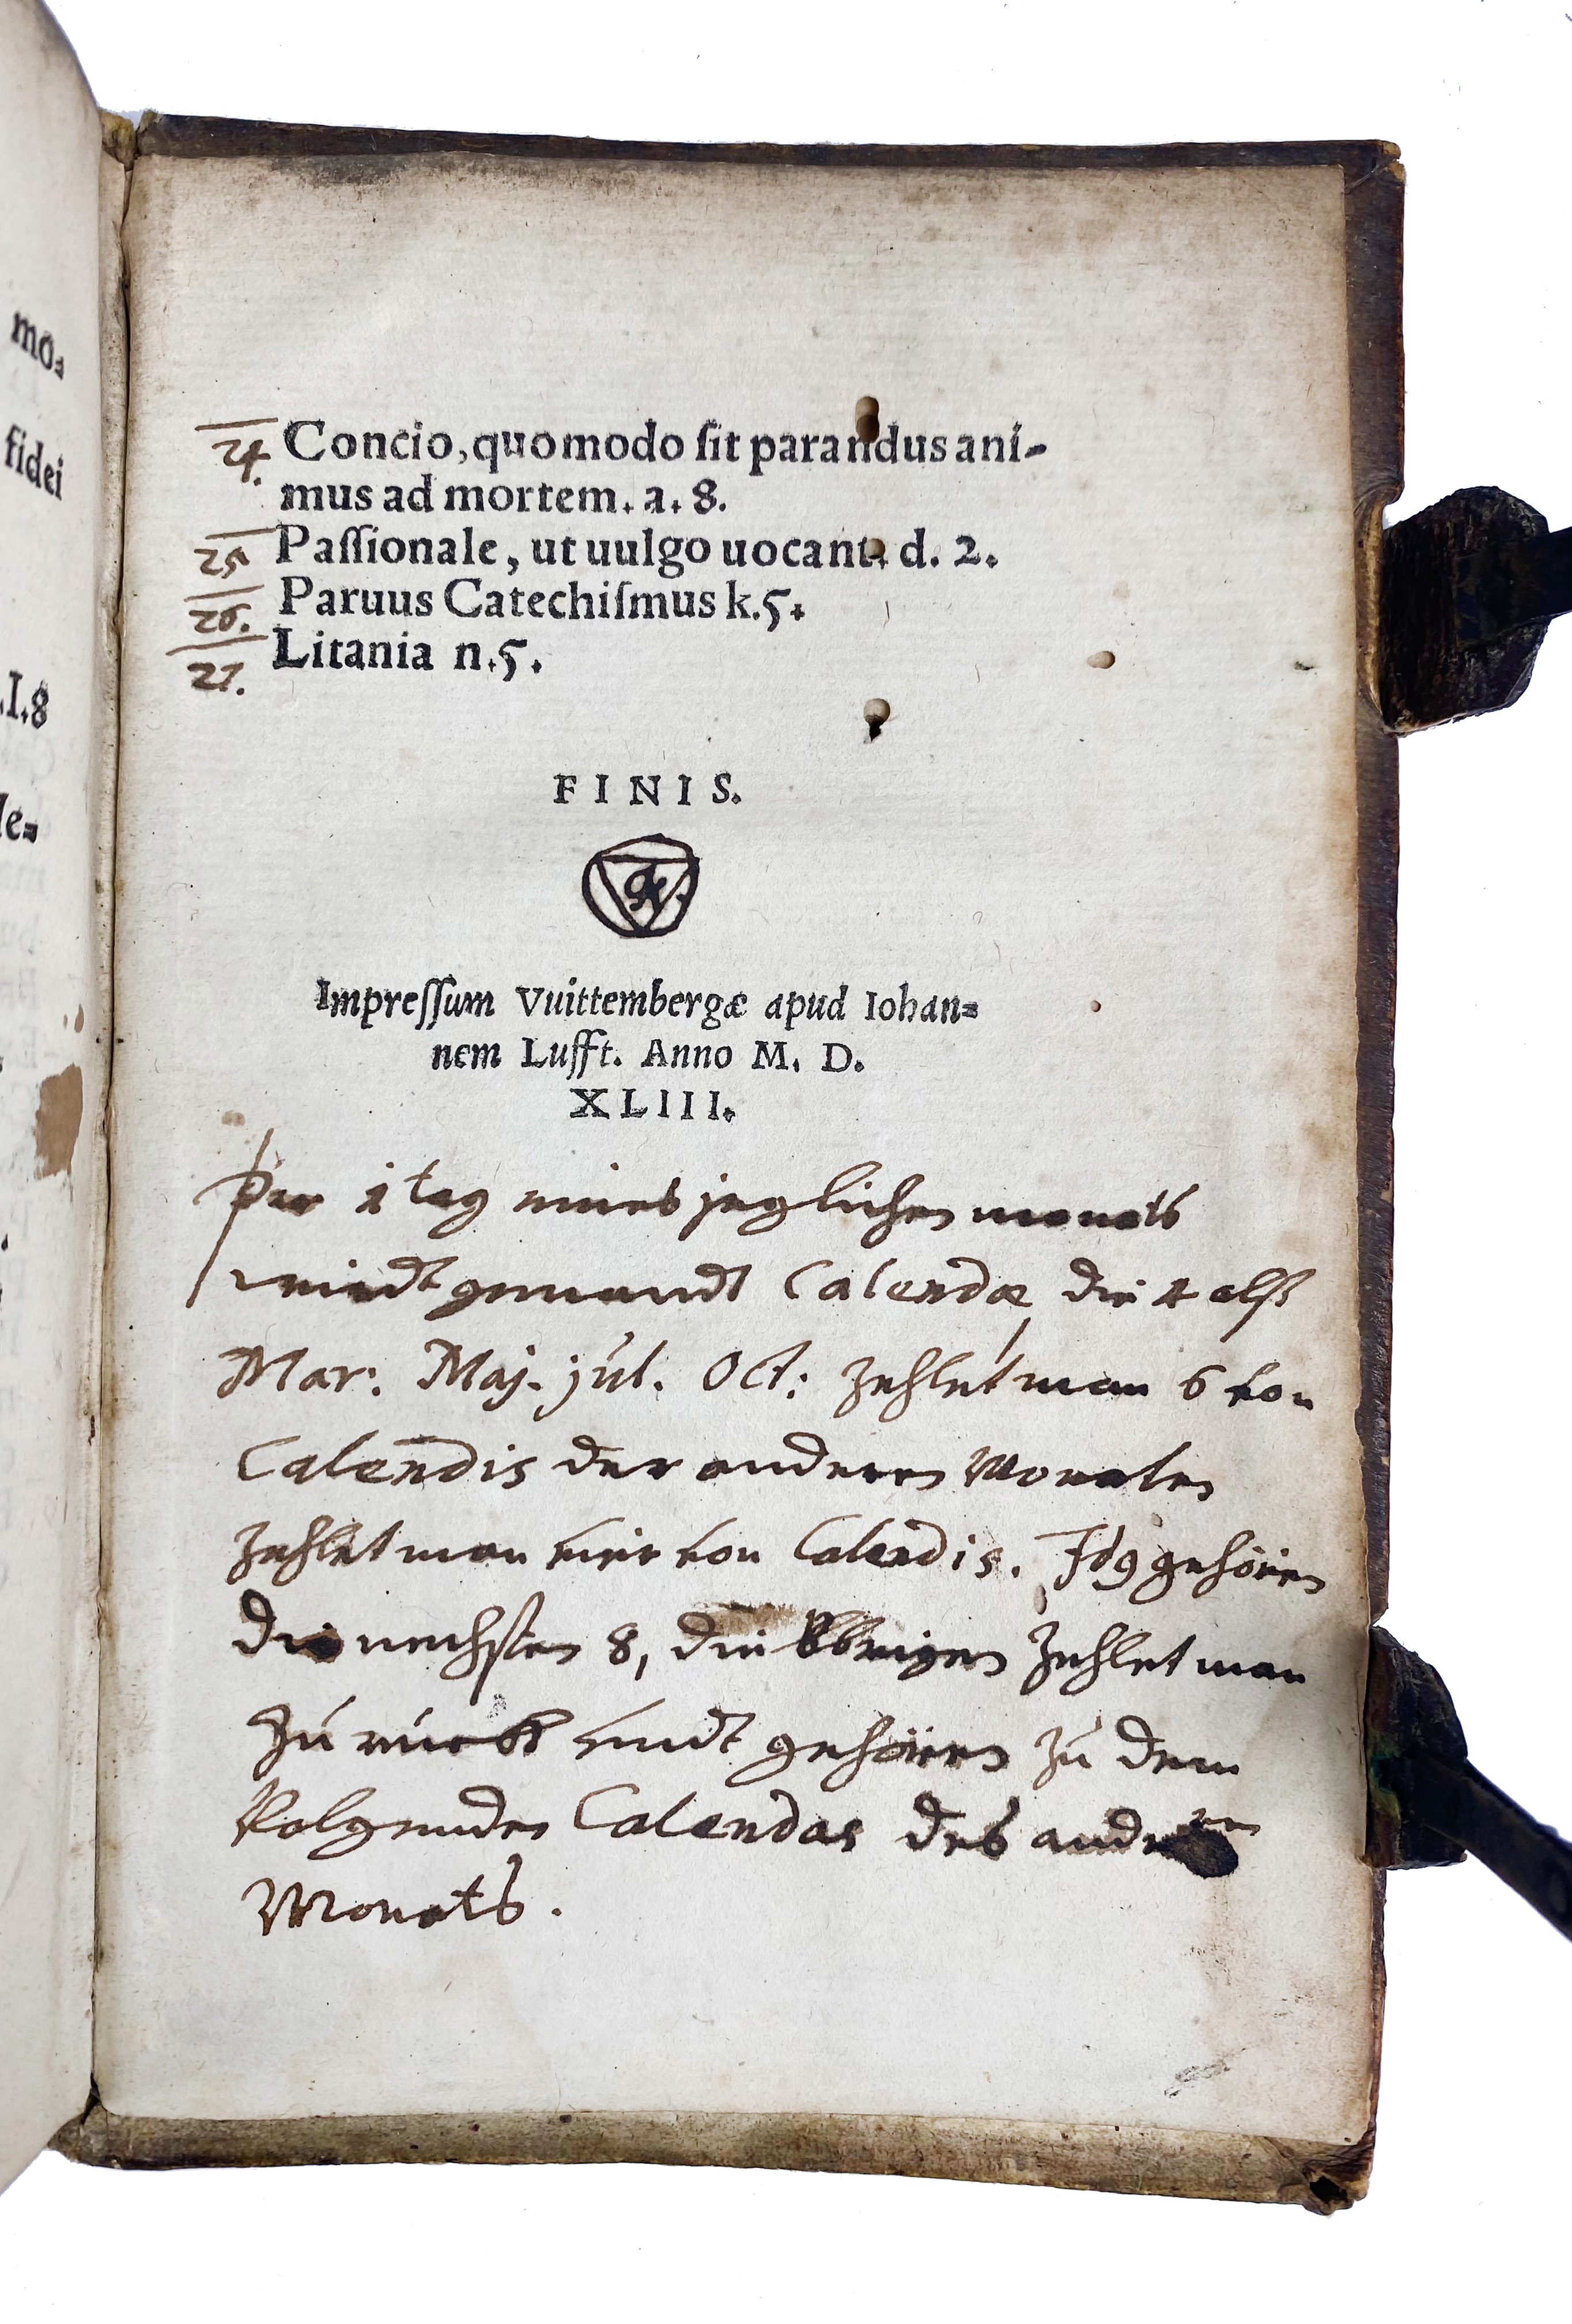 mo⸗
fidei
.I.8
le⸗
24. Concio, quomodo ſit parandus ani-
mus ad mortem. a. 8.
25 Paſſionale, ut uulgo uocant. d. 2.
26. Paruus Catechiſmus k.5.
27. Litania n.5.
FINIS.
Impreſſum Vuittembergæ apud Iohan⸗
nem Lufft. Anno M. D.
XLIII.
Der 1 tag eines jeglichen monats
wirdt genandt Calendæ die 4 alß
Mar: Maj. jul. Oct: zehlet man 6 von
Calendis der anderen Monaten
zehlet man vier von Calendis. Idq gehören
die nechsten 8, die Vbrigen zehlet man
zu rück vndt gehören zu dem
Volgenden Calendas des anderen
Monats.